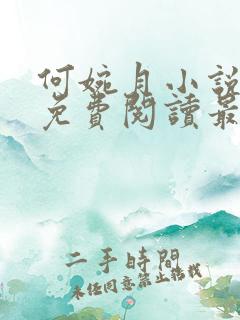 何婉月小說
免費閱讀最
二手時間
未經同意禁止轉載